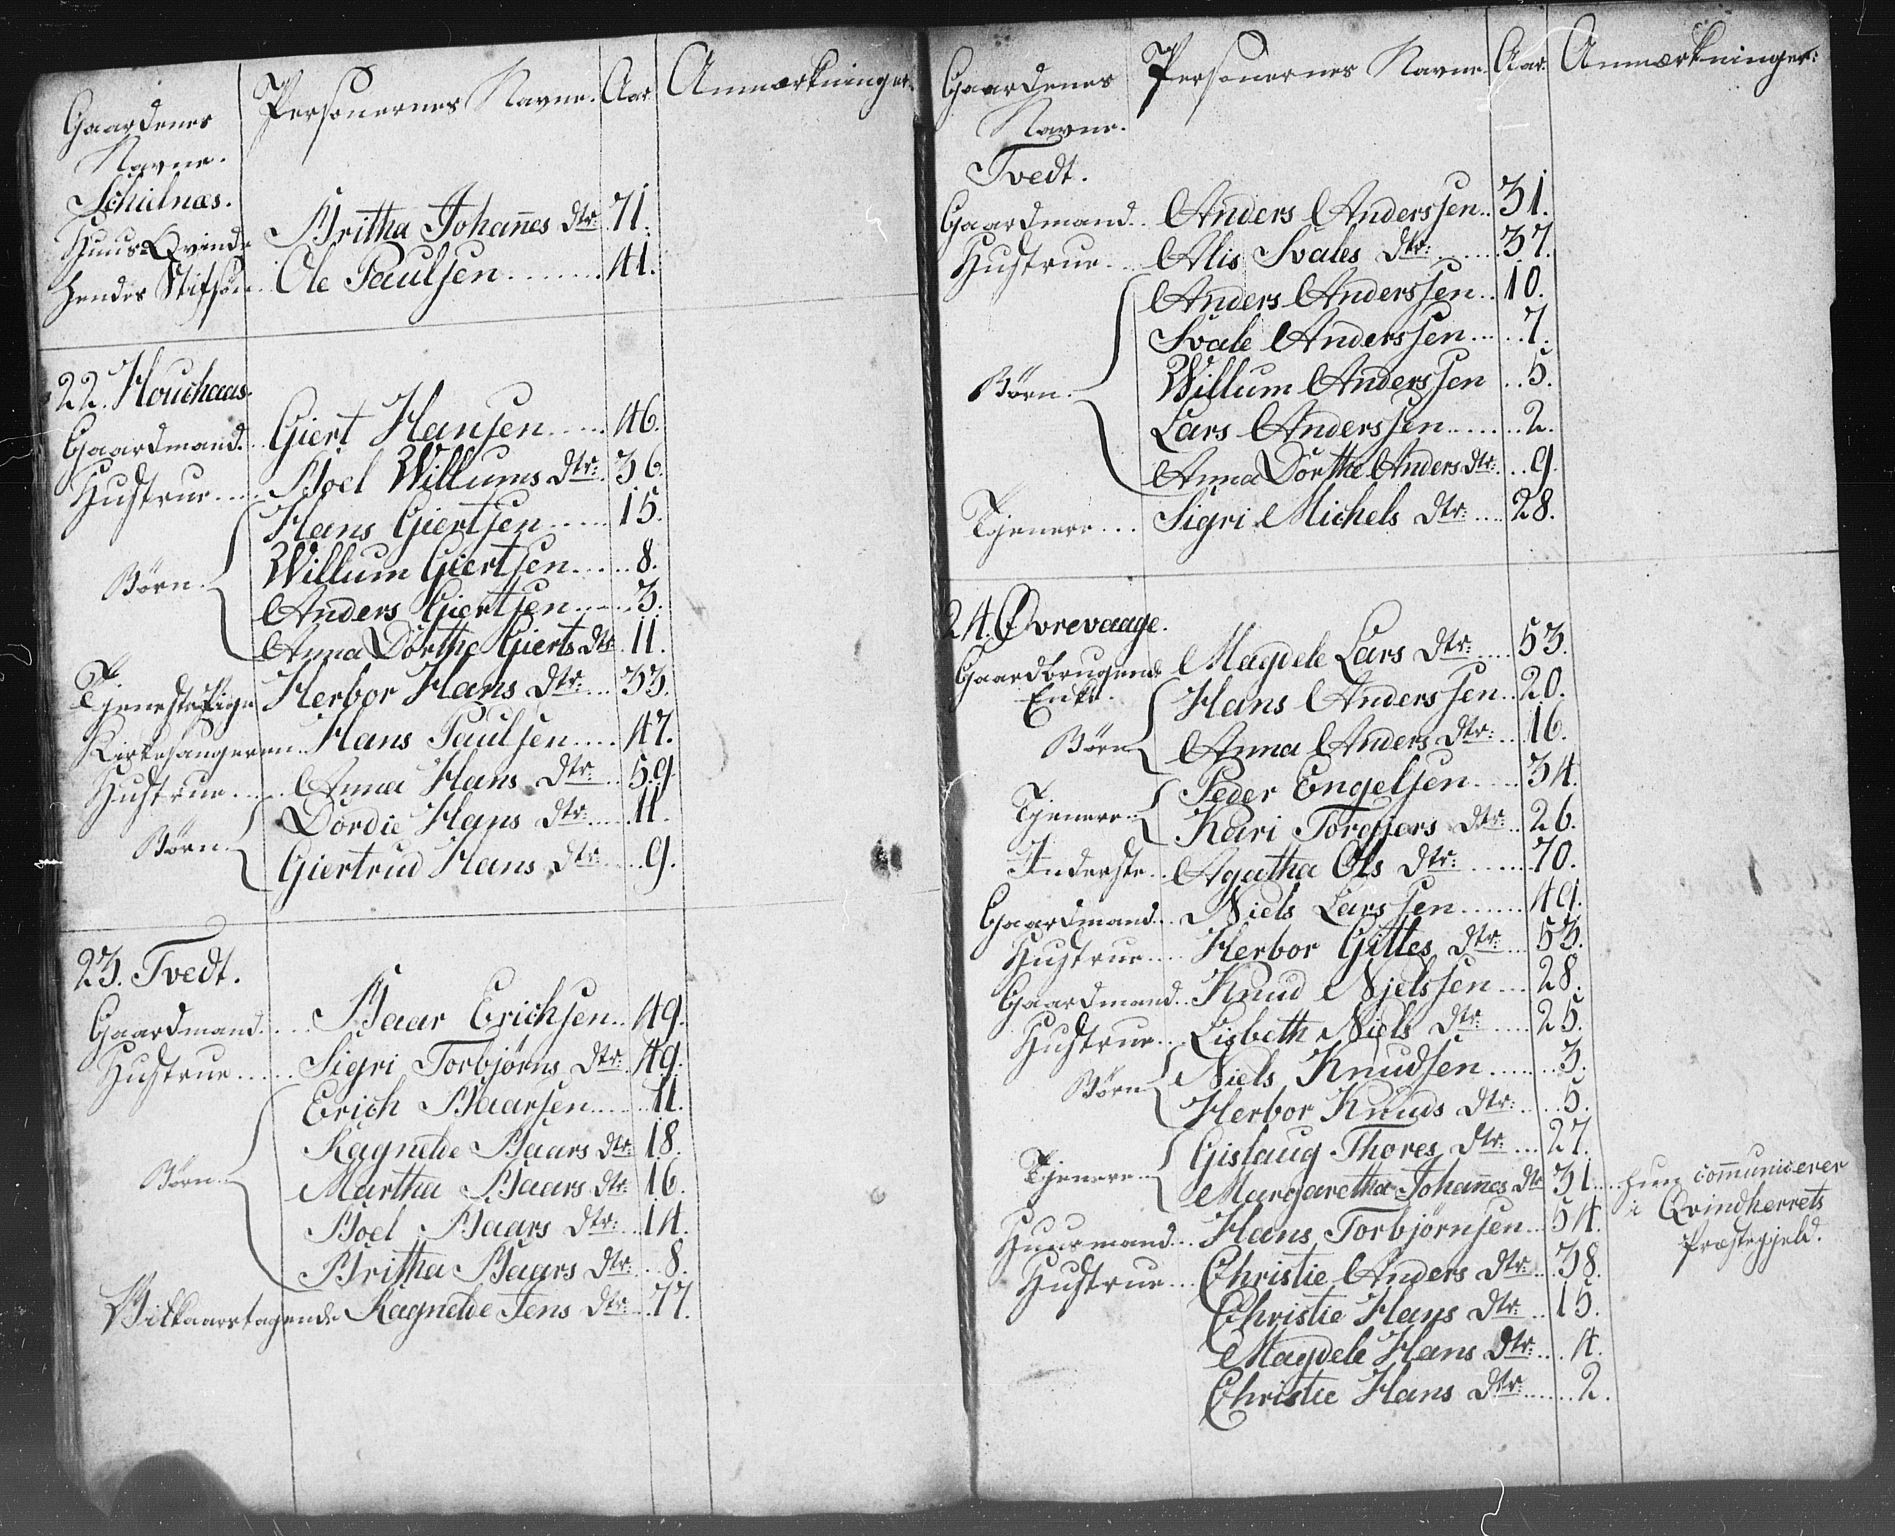 Gaardenes Navne. Personernes Navne. Aar Anmærkninger.
Schulnæs.
Huus Qvinde Britha Johan̄es Dtr: 71.
Hendes Stifsøn Ole Paulsen 41.
22. Houchaas.
Gaardmand. Giert Hansen 46.
Hustrue Boel Willums Dtr: 36.
Hans Giertsen 15.
Børn Willum Giertsen 8.
Anders Giertsen 3.
Anna Dorthe Gierts Dtr 11.
Tjeneste Pige Herbor Hans Dtr: 33.
Kirkesangeren Hans Paulsen 47.
Hustrue Anna Hans Dtr: 59
Børn Dordie Hans Dtr: 11.
Giertrud Hans Dtr: 9.
23. Tvedt.
Gaardmand Baar Erichsen 49.
Hustrue Sigri Torbjørns Dtr: 49.
Erich Baarsen 11.
Ragnelde Baars Dtr: 18.
Børn Martha Baars Dtr: 16.
Boel Baars Dtr: 14.
Britha Baars Dtr: 8.
Vilkaarstagende Ragnelde Jens Dtr: 77.
Gaardenes Navne. Personernes Navne Aar. Anmærkninger:
Tvedt.
Gaardmand Anders Anderssen 31.
Hustrue Alis Svales Dtr: 37.
Anders Anderssen 10.
Svale Anderssen 7.
Børn. Willum Anderssen 5.
Lars Anderssen 2.
Anna Dorthe Anders Dtr: 9.
Tjenere Sigri Michels Dtr: 28.
24. Øvrevaage.
Gaardbrugende Magdele Lars Dtr: 53.
Enke. Hans Anderssen 20.
Børn Anna Anders Dtr: 16.
Peder Engelsen 34.
Tjenere Kari Torgjers Dtr: 26.
Inderste Agatha Ols Dtr: 70.
Gaardmand Niels Larssen 49.
Hustrue Herbor Gittes Dtr: 53.
Gaardmand Knud Njelssen 28.
Hustrue Lisbeth Niels Dtr: 25.
Børn Niels Knudsen 3.
Herbor Knuds Dtr: 5.
Gislaug Thores Dtr: 27.
Tjenere Margaretha Johan̄es Dtr 31. hun com̄unicerer
Huusmand Hans Torbjørnsen 54. i Qvindherrets
Hustrue Christie Anders Dtr: 38. Præstegjeld.
Christie Hans Dtr: 15.
Magdele Hans Dtr: 4.
Christie Hans Dtr: 2.